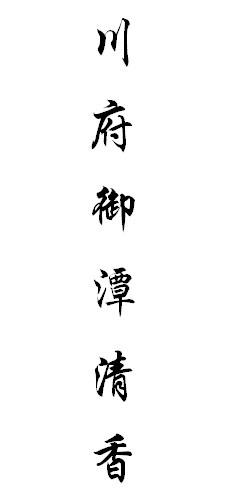 川府御潭清香